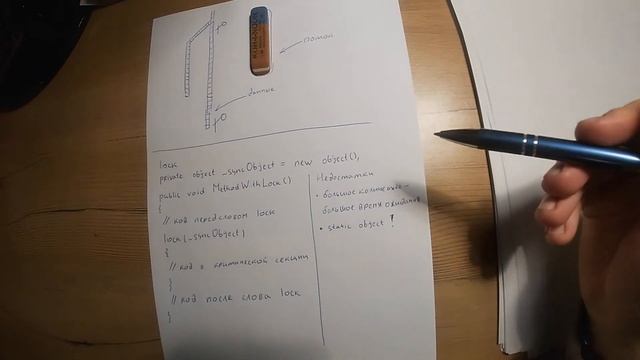 поток
данные
lock
private object _syncObject = new object();
public void MethodWithLock()
{
// код перед словом lock
lock(_syncObject)
{
// код в критической секции
}
// код после слова lock
}
Недостатки
• большое количество -
большое время ожидания
• static object!